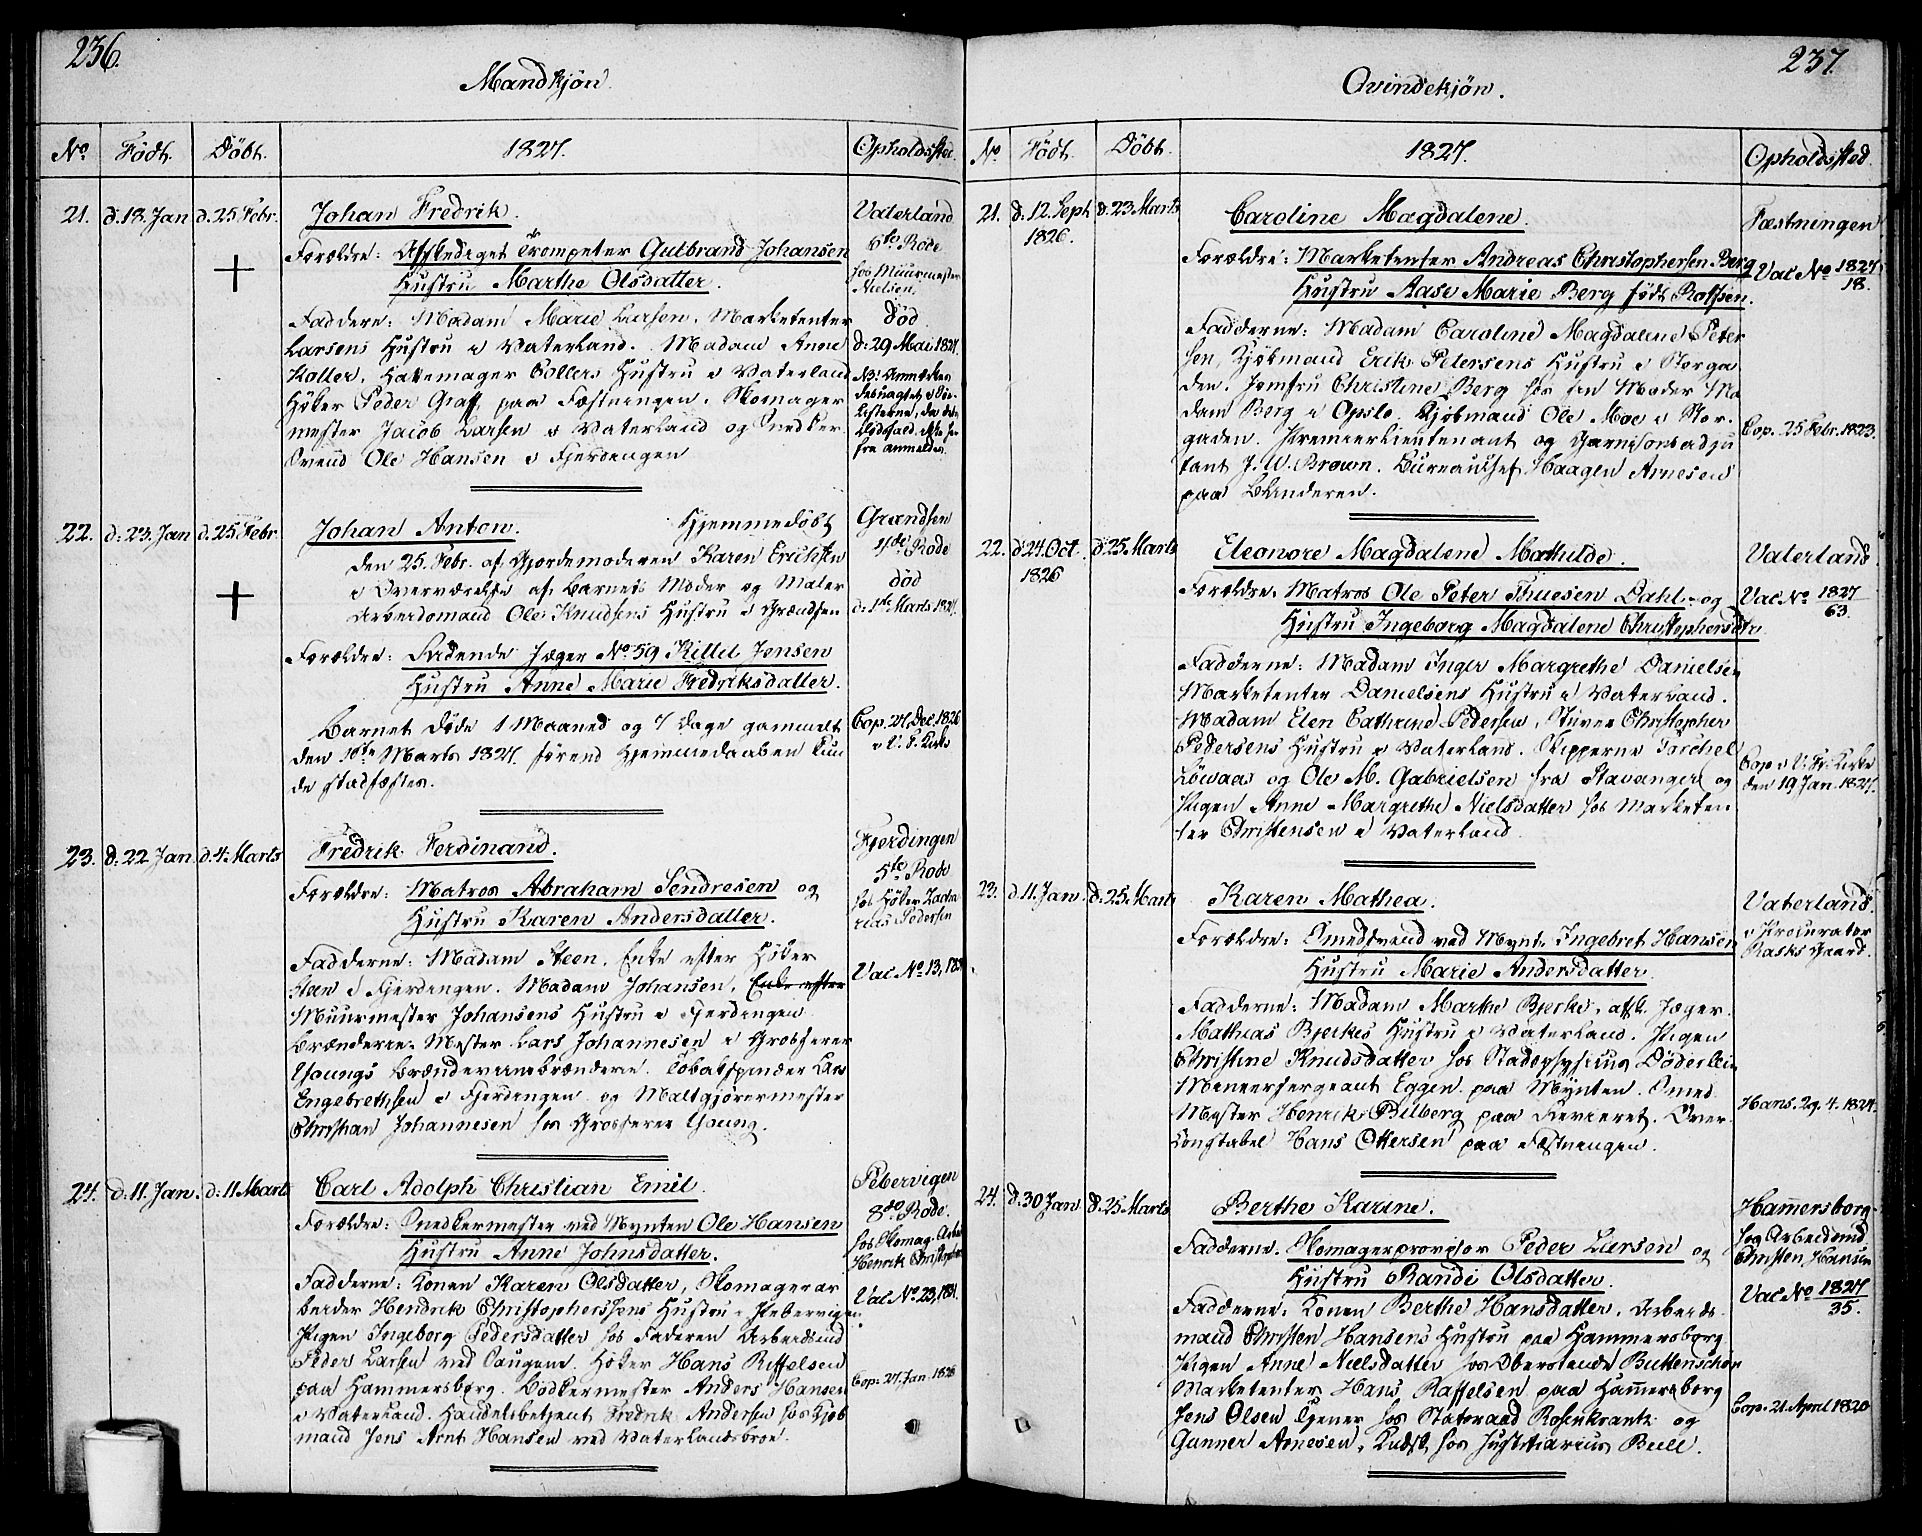 236.
Mandkjøn.
No. Födt. Döbt. 1827. Opholdssted.
21. d. 18. Jan d. 25 Febr. Johan Fredrik.
Forældre: Afskediget Trompeter Gulbrand Johansen
Hustru Marthe Olsdatter.
Faddere: Madam Marie Larsen, Marketenter
Larsens Hustru i Vaterland. Madam Anne
Holler, Hattemager Hollers Hustru i Vaterland
Høker Peder Graff paa Fæstningen. Skomager
mester Jacob Larsen i Vaterland og Snedker
Svend Ole Hansen i Fjerdingen
Vaterland
6te Rode
hos Muurmester
Nielsen.
død
d. 29 Mai 1827.
22. d. 23. Jan d. 25 Febr. Johan Anton. Hjemmedöbt
den 25. Febr. af Gjordemoderen Karen Erichsen
i Overværelse af Barnets Moder og Maler
Arbeidsmand Ole Knudsens Hustru i Grændsen
Forældre: Ridende Jæger No. 59 Killil Jensen
Hustru Anne Marie Fredriksdatter.
Barnet døde 1 Maaned og 7 Dage gammelt
den 1ste Marts 1827. førend Hjemmedaaben kun
de stadfæstes.
Grændsen
4de Rode
død
d. 1ste Marts 1827.
Cop. 27. Dec. 1826
i V. F. Kirke
23. d. 22 Jan d. 4. Marts Fredrik Ferdinand.
Forældre: Matros Abraham Sendresen og
Hustru Karen Andersdatter.
Fadderne: Madam Steen, Enke efter Høker
Steen i Fjerdingen. Madam Johansen, Enke efter
Muurmester Johansens Hustru i Fjerdingen
Brænderie-Mester Lars Johannesen i Grosserer
Youngs Brændeviinsbrænderie. Tobakspinder Lars
Engebrethsen i Fjerdingen og Maltgjørermester
Christian Johannesen hos Grosserer Young.
Fjerdingen
5te Rode
hos Høker Zacha
rias Pedersen
Vac No. 13, 18
24. d. 11. Jan. d. 11 Marts Carl Adolph Christian Emil
Forældre: Snedkermester ved Mynten Ole Hansen
Hustru Anne Johnsdatter.
Fadderne: Konen Karen Olsdatter, Skomagerar
beider Hendrik Christophersens Hustru i Pebervigen.
Pigen Ingeborg Pedersdatter hos Faderen Arbeidsmd
Peder Larsen ved Saugene. Høker Hans Riffelsen
paa Hammersborg. Bødkermester Anders Hansen
i Vaterland. Handelsbetjent Fredrik Andersen hos Kjøb
mand Jens Arnt Hansen ved Vaterlandsbroe.
Pebervigen
8de Rode.
hos Skomag. Arb
Henrik Christoph
Vac No. 23, 18
Cop. 27. Jan. 1826
237.
Qvindekjøn.
No. Födt. Döbt. 1827. Opholdssted
21. d. 12. Sept d. 23 Marts Caroline Magdalene.
1826.
Forældre: Marketenter Andreas Christophersen Berg
Hustru Aase Marie Berg født Rolfsen.
Fadderne: Madam Caroline Magdalene Peter
sen, Kjøbmand Erik Petersens Hustru i Storga
den. Jomfru Christine Berg hos sin Moder Ma
dam Berg i Opslo. Kjøbmand Ole Moe i Stor-
gaden. Premierlieutenant og Garnisonsadju
tant J. W. Brown. Bureauchef Haagen Arnesen
paa Blinderen.
Fæstningen
Vac No 1827
18.
Cop. 25 Febr. 1823.
22. d 24. Oct. d. 25. Marts Eleonore Magdalene Mathilde.
1826
Forældre. Matros Ole Peter Thuesen Dahl og
Hustru Ingeborg Magdalene Christophersdtr.
Fadderne: Madam Inger Margrethe Danielsen
Marketenter Danielsens Hustru i Vaterland.
Madam Elen Cathrine Pedersen, Stuver Christopher
Pedersens Hustru i Vaterland. Skipperne Torchel
Löwaas og Ole M. Gabrielsen fra Stavanger og
Pigen Anne Margrethe Nielsdatter hos Marketen
ter Christensen i Vaterland.
Vaterland.
Vac No 1827
63.
Cop i V. Fr. Kirke
den 19 Jan. 1827.
23. d. 11. Jan. d. 25. Marts Karen Mathea.
Forældre: Smedsvend ved Mynt. Ingebret Hansen
Hustru Marie Andersdatter.
Fadderne: Madam Marthe Bjerke, afsk. Jæger
Mathias Bjerkes Hustru i Vaterland. Pigen
Christine Knudsdatter hos Stadsphysicus Döderlein
Mineersergeant Eggen paa Mynten. Smed-
Mester Henrik Bilberg paa Revieret. Over-
Constabel Hans Ottersen paa Fæstningen.
Vaterland.
i Procurator
Rasks Gaard.
Hans. 29. 4. 1824.
24. d. 30 Jan. d. 25. Marts Berthe Karine.
Fadderne. Skomagerprovisor Peder Larsen og
Hustru Randi Olsdatter.
Fadderne: Konen Berthe Hansdatter, Arbeids-
mand Christen Hansens Hustru paa Hammersborg
Pigen Anne Nielsdatter hos Oberstinde Buttenschøn
Marketenter Hans Raffelsen paa Hammersborg
Jens Olsen Tjener hos Statsraad Rosenkrantz og
Gunner Arnesen, Kudsk hos Justitiarius Bull.
Hammersborg
hos Arbeidsmd
Christen Hansen
Vac No 1827
35.
Cop. 21. April 1820